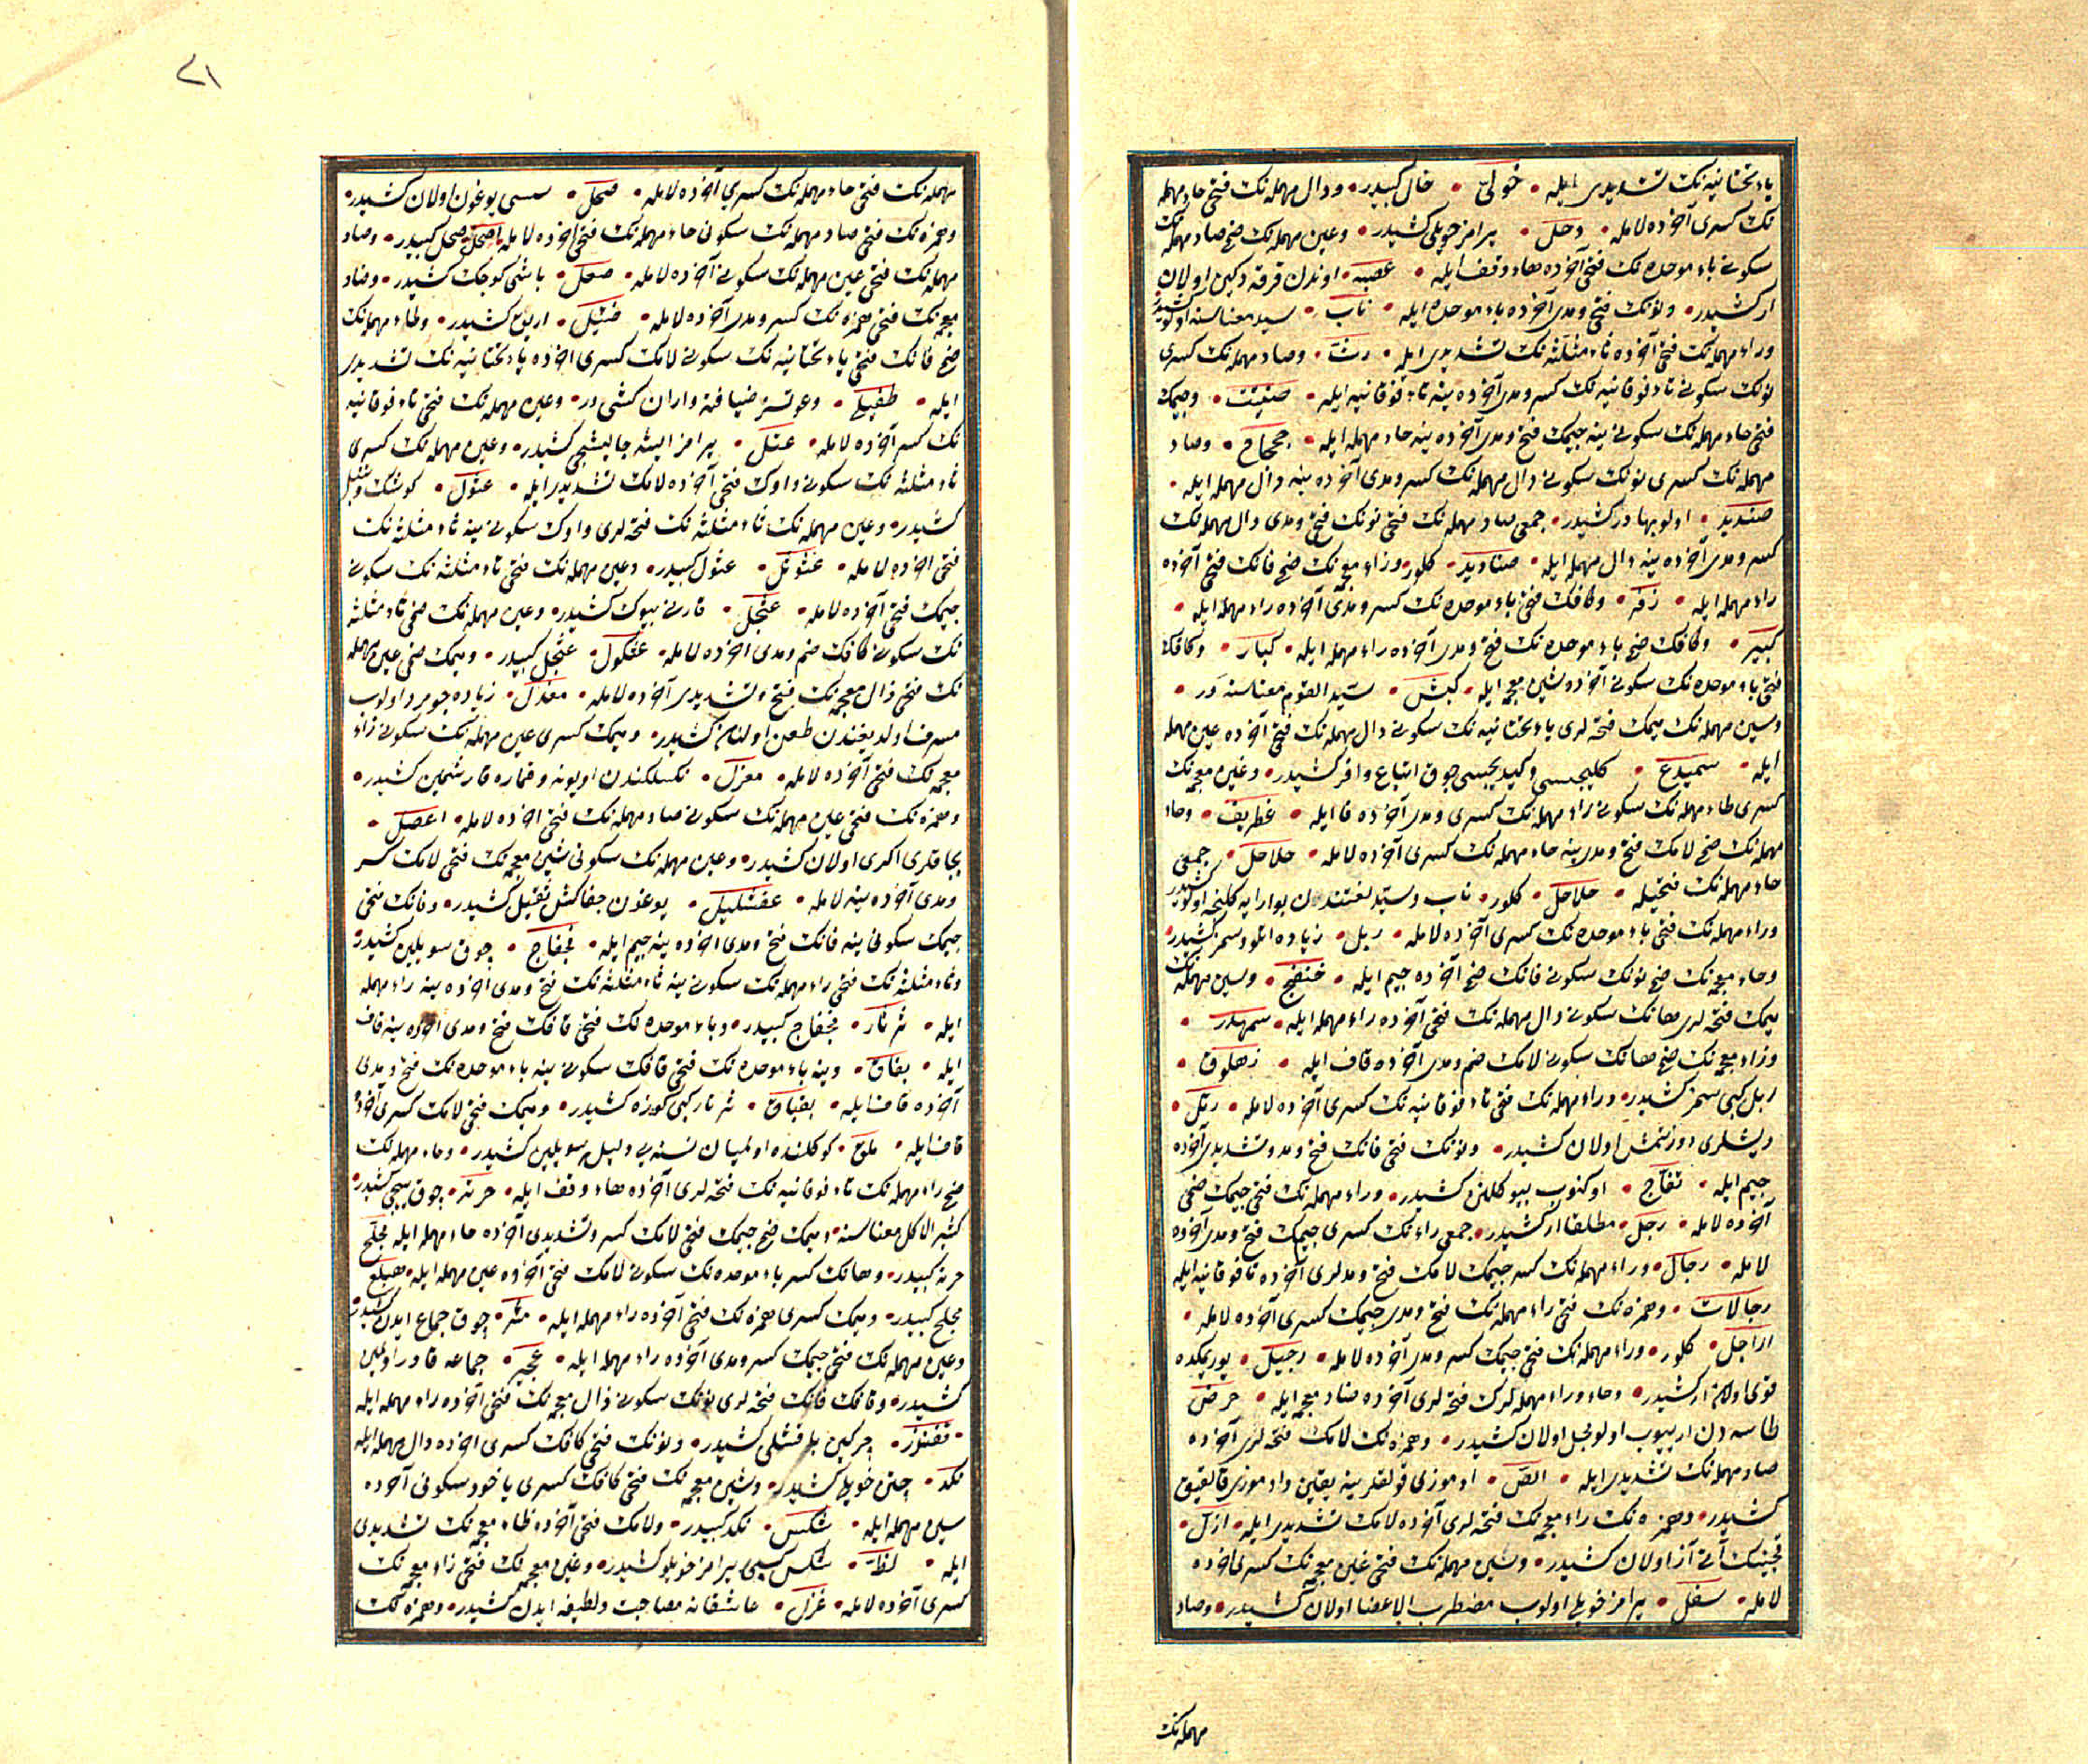 یاء تحتانیه نک تشدیدی ایله • خولیّ • خال کبیدر • ودال مهمله نک فتحی حاء مهمله
نک کسری آخرده لامله • دحل • یرامز خویلی کشیدر • وعین مهمله نک ضمی صاد مهمله نک
سکونی باء موحده نک فتحی آخرده هاء وقف ایله • عصبه • اوندن قرقه دکین اولان
ار کشیدر • ونونک فتحی ومدی آخرده باء موحده ایله • ناب • سید معناسنه اولو کشیدر
وراء مهمله نک فتحی آخرده ثاء مثلثه نک تشدیدی ایله • رثّ • وصاد مهمله نک کسری
نونک سکونی تاء فوقانیه نک کسر ومدی آخرده ینه تاء فوقانیه ایله • صنتیت • وجیمک
فتحی حاء مهمله نک سکونی ینه جیمک فتح ومدی آخرده ینه حاء مهمله ایله • جحجاح • وصاد
مهمله نک کسری نونک سکونی دال مهمله نک کسر ومدی آخرده ینه دال مهمله ایله •
صندید • اولو بهادر کشیدر • جمعی صاد مهمله نک فتحی نونک فتح ومدی دال مهمله نک
کسر ومدی آخرده ینه دال مهمله ایله • صنادید • کلور • وزاء معجمه نک ضمی فانک فتحی آخرده
راء مهمله ایله • زفر • وکافک فتحی باء موحده نک کسر ومدی آخرده راء مهمله ایله •
کبیر • وکافک ضمی باء موحده نک فتح ومدی آخرده راء مهمله ایله • کبار • وکافک
فتحی باء موحده نک سکونی آخرده شین معجمه ایله • کبش • سید القوم معناسنه در •
وسین مهمله نک میمک فتحه لری یاء تحتانیه نک سکونی دال مهمله نک فتحی آخرده عین مهمله
ایله • سمیدع • کلیجیسی وکیدیجیسی چوق اتباع وافر کشیدر • وغین معجمه نک
کسری طاء مهمله نک سکونی راء مهمله نک کسری ومدی آخرده فا ایله • غطریف • وحاء
مهمله نک ضمی لامک فتح ومدی ینه حاء مهمله نک کسری آخرده لامله • حلاحل • جمعی
حاء مهمله نک فتحیله • حلاحل • کلور • ناب وسید لغتندن بوارایه کلنجه اولو کشیدر
وراء مهمله نک فتحی باء موحده نک کسری آخرده لامله • ربل • زیاده اتلو وسمز کشیدر •
وخاء معجمه نک ضمی نونک سکونی فانک ضمی آخرده جیم ایله • خنفج • وسین مهمله نک
میمک فتحه لری هانک سکونی دال مهمله نک فتحی آخرده راء مهمله ایله • سمهدر •
وزاء معجمه نک ضمی هانک سکونی لامک ضم ومدی آخرده قاف ایله • زهلوق •
ربل کبی سمز کشیدر • وراء مهمله نک فتحی تاء فوقانیه نک کسری آخرده لامله • رتل •
دیشلری دوزنمش اولان کشیدر • ونونک فتحی فانک فتح ومد وتشدیدی آخرده
جیم ایله • نفّاج • اوکنوب بیوکلنن کشیدر • وراء مهمله نک فتحی جیمک ضمی
آخرده لامله • رجل • مطلقا ار کشیدر • جمعی راء نک کسری جیمک فتح ومدی آخرده
لامله • رجال • وراء مهمله نک کسر جیمک لامک فتح ومدلری آخرده تا فوقانیه ایله
رجالات • وهمزه نک فتحی راء مهمله نک فتح ومدی جیمک کسری آخرده لامله •
اراجل • کلور • وراء مهمله نک فتحی جیمک کسر ومدی آخرده لامله • رجیل • یوریمکده
قوی اولان ار کشیدر • وحاء وراء مهمله لرک فتحه لری آخرده ضاد معجمه ایله • حرض
طاسه دن ارییوب اولومجل اولان کشیدر • وهمزه نک لامک فتحه لری آخرده
صاد مهمله نک تشدیدی ایله • الصّ • اوموزی قولقلرینه یقین واوموزی قالقیق
کشیدر • وهمزه نک زاء معجمه نک فتحه لری آخرده لامک تشدیدی ایله • ازلّ •
قچینک اتی آز اولان کشیدر • وسین مهمله نک فتحی غین معجمه نک کسری آخرده
لامله • سغل • یرامز خویلی اولوب مضطرب الاعضا اولان کشیدر • وصاد
مهمله نک
۲۱
مهمله نک فتحی حاء مهمله نک کسری آخرده لامله • صحل • سسی یوغون اولان کشیدر •
وهمزه نک فتحی صاد مهمله نک سکونی حاء مهمله نک فتحی آخرده لامله • اصحل • صحل کبیدر • وصاد
مهمله نک فتحی عین مهمله نک سکونی آخرده لامله • صعل • باشی کوجک کشیدر • وضاد
معجمه نک فتحی همزه نک کسر ومدی آخرده لامله • ضئیل • اریق کشیدر • وطاء مهمله نک
ضمی فانک فتحی یاء تحتانیه نک سکونی لامک کسری آخرده یاء تحتانیه نک تشدیدی
ایله • طفیلی • دعوتسز ضیافته واران کشی در • وعین مهمله نک فتحی تاء فوقانیه
نک کسر آخرده لامله • عتل • یرامز ایشه چالیشجی کشیدر • وعین مهمله نک کسری
ثاء مثلثه نک سکونی واوک فتحی آخرده لامک تشدیدی ایله • عثول • کوشک وثقیل
کشیدر • وعین مهمله نک ثاء مثلثه نک فتحه لری واوک سکونی ینه ثاء مثلثه نک
فتحی آخرده لامله • عثوثل • عثول کبیدر • وعین مهمله نک فتحی ثاء مثلثه نک سکونی
جیمک فتحی آخرده لامله • عثجل • قارنی بیوک کشیدر • وعین مهمله نک ضمی ثاء مثلثه
نک سکونی کافک ضم ومدی آخرده لامله • عثکول • عثجل کبیدر • ومیمک ضمی عین مهمله
نک فتحی ذال معجمه نک فتح وتشدیدی آخرده لامله • معذل • زیاده جومرد اولوب
مسرف اولدیغندن طعن اولنان کشیدر • ومیمک کسری عین مهمله نک سکونی زاء
معجمه نک فتحی آخرده لامله • معزل • نکسلکندن اویونه وقماره قارشمین کشیدر •
وهمزه نک فتحی عین مهمله نک سکونی صاد مهمله نک فتحی آخرده لامله • اعصل •
بجاقلری اکری اولان کشیدر • وعین مهمله نک سکونی شین معجمه نک فتحی لامک کسر
ومدی آخرده ینه لامله • عفشلیل • یوغون جفاکش ثقیل کشیدر • وفانک فتحی
جیمک سکونی ینه فانک فتح ومدی آخرده ینه جیم ایله • فجفاج • چوق سویلین کشیدر
وثاء مثلثه نک فتحی راء مهمله نک سکونی ینه ثاء مثلثه نک فتح ومدی آخرده ینه راء مهمله
ایله • ثرثار • فجفاج کبیدر • وباء موحده نک فتحی قافک فتح ومدی آخرده ینه قاف
ایله • بقاق • وینه باء موحده نک فتحی قافک سکونی ینه باء موحده نک فتح ومدی
آخرده قاف ایله • بقباق • ثرثار کبی کوزه کشیدر • ومیمک فتحی لامک کسری آخرده
قاف ایله • ملق • کوکلنده اولمیان نسنه یی دلیل سویلین کشیدر • وحاء مهمله نک
ضمی راء مهمله نک تاء فوقانیه نک فتحه لری آخرده هاء وقف ایله • حرته • چوق ییجی کشیدر
کثیر الاکل معناسنه • ومیمک ضمی جیمک فتحی لامک کسر وتشدیدی آخرده حاء مهمله ایله مجلّح
حرته کبیدر • وهانک کسر باء موحده نک سکونی لامک فتحی آخرده عین مهمله ایله • هبلع
مجلح کبیدر • ومیمک کسری همزه نک فتحی آخرده راء مهمله ایله • مئر • چوق جماع ایدن کشیدر
وعین مهمله نک فتحی جیمک کسر ومدی آخرده راء مهمله ایله • عجیر • جماعه قادر اولمین
کشیدر • وقافک فانک فتحه لری نونک سکونی ذال معجمه نک فتحی آخرده راء مهمله ایله
• قفنذر • چرکین یلقشلی کشیدر • ونونک فتحی کافک کسری آخرده دال مهمله ایله
نکد • چتن خویلی کشیدر • وشین معجمه نک فتحی کافک کسری یاخود سکونی آخرده
سین مهمله ایله • شکس • نکد کبیدر • ولامک فتحی آخرده ظاء معجمه نک تشدیدی
ایله • لظّ • شکس کبی یرامز خویلو کشیدر • وغین معجمه نک فتحی زاء معجمه نک
کسری آخرده لامله • غزل • عاشقانه مصاحبت ولطیفه ایدن کشیدر • وهمزه نک